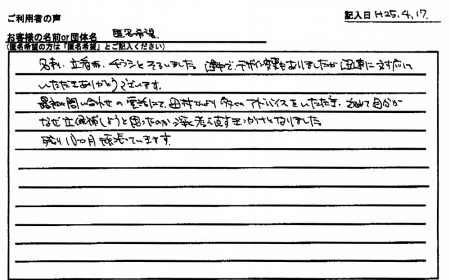 ご利用者の声
記入日 H25.4.17.
お客様の名前or団体名 匿名希望.
(匿名希望の方は「匿名希望」とご記入ください)
名刺、立看板、チラシとそろいました。途中で、デザイン変更もありましたが迅速に対応して
いただきありがとうございます。
最初の問い合わせの電話にて、田村さんより多くのアドバイスをいただき、改めて自分が
なぜ立候補しようと思ったのか深く考え直すきっかけとなりました。
残り10ヶ月頑張っていきます。